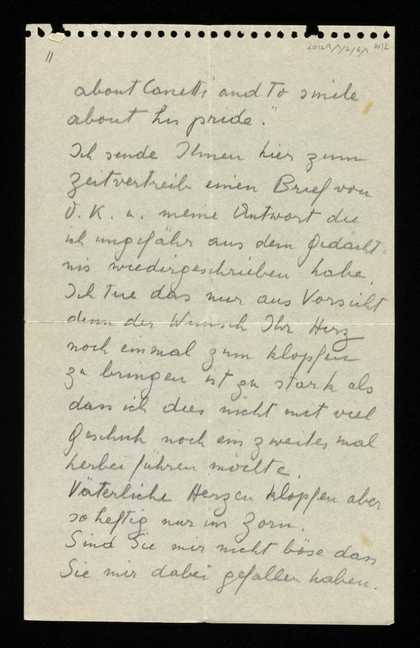 11
about Canetti "and to smile
about his pride."
Ich sende Ihnen hier zum
Zeitvertreib einen Brief von
O. K. u. meine Antwort die
ich ungefähr aus dem Gedächt-
nis wiedergeschrieben habe.
Ich tue das nur aus Vorsicht
denn der Wunsch Ihr Herz
noch einmal zum klopfen
zu bringen ist zu stark als
dass ich dies nicht mit viel
Geschick noch ein zweites mal
herbei führen möchte.
Väterliche Herzen klopfen aber
so heftig nur im Zorn.
Sind Sie mir nicht böse dass
Sie mir dabei gefallen haben.